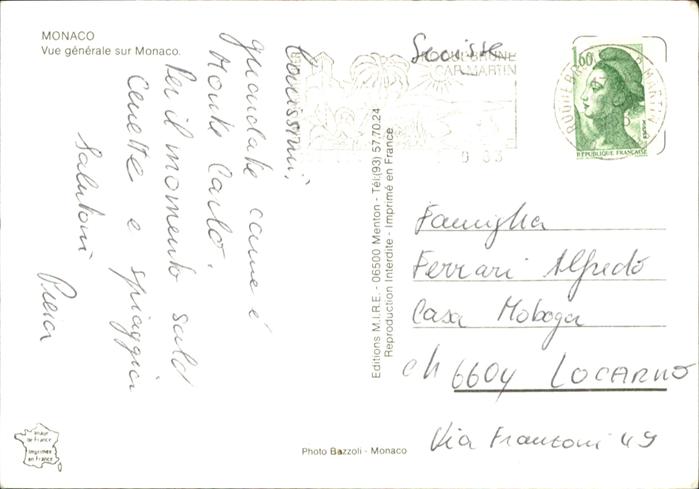 MONACO
Vue générale sur Monaco.
Carissimi,
guardate come è
Monte Carlo.
Per il momento solo
Casette e spiaggia
Salutoni
Suisse
ROQUEBRUNE
CAP MARTIN
1,60
RÉPUBLIQUE FRANÇAISE
Editions M.I.R.E. - 06500 Menton - Tél (93) 57.70.24
Reproduction Interdite - Imprimé en France
Famiglia
Ferrari Alfredo
Casa Moboga
CH 6604 LOCARNO
Via Franzoni 49
Image
de France
Imprimée
en France
Photo Bazzoli - Monaco